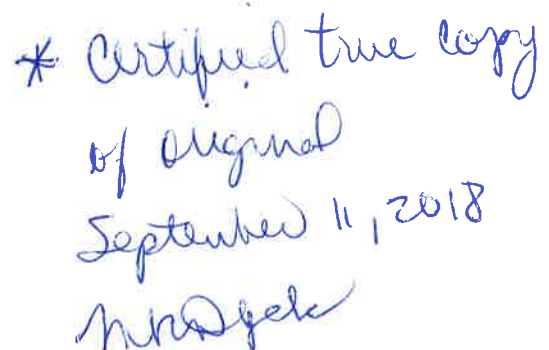 * Certified true copy
of original
September 11, 2018